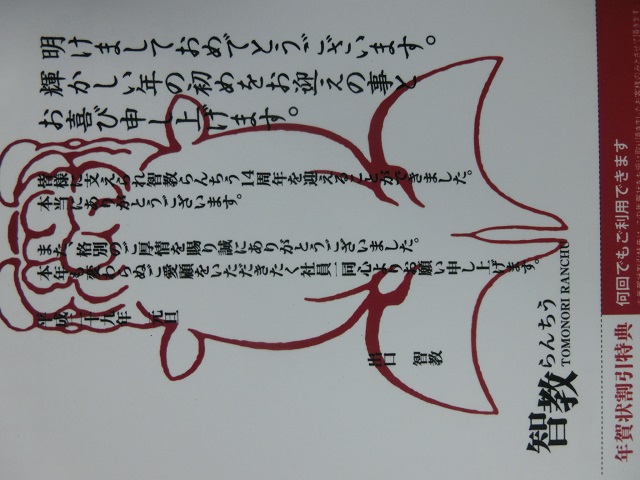 明けましておめでとうございます。
輝かしい年の初めをお迎えの事と
お喜び申し上げます。
皆様に支えられ智教らんちう14周年を迎えることができました。
本当にありがとうございます。
また、格別のご厚情を賜り誠にありがとうございました。
本年も変わらぬご愛顧をいただきたく社員一同心よりお願い申し上げます。
平成二十九年 元旦
智教
智教らんちう
TOMONORI RANCHU
年賀状割引特典
何回でもご利用できます